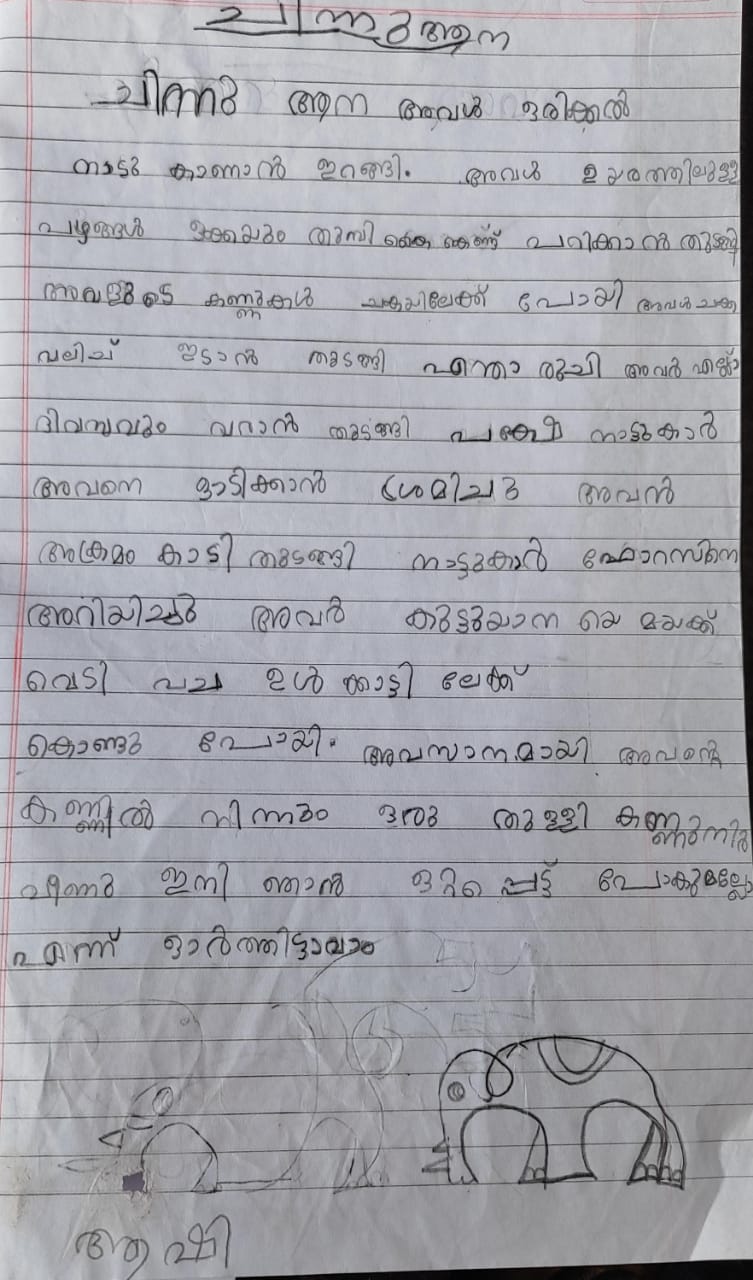 ചിന്നു ആന
ചിന്നു ആന അവൾ ഒരിക്കൽ
നാടു കാണാൻ ഇറങ്ങി. അവൾ ഉയരത്തിലുള്ള
പഴങ്ങൾ തുമ്പി കൈ കൊണ്ട് പറിക്കാൻ തുടങ്ങി
അവളുടെ കണ്ണുകൾ ചക്കയിലേക്ക് പോയി അവൾ ചക്ക
വലിച് ഇടാൻ തുടങ്ങി എന്താ രുചി അവർ എല്ലാ
ദിവസവും വറാൻ തുടങ്ങി പക്ഷേ നാട്ടുകാർ
അവനെ ഓടിക്കാൻ ശ്രമിചു അവൻ
അക്രമം കാട്ടി തുടങ്ങി നാട്ടുകാർ ഫോറസിനെ
അറിയിച്ചു അവർ കുട്ടുയാന യെ മയക്ക്
വെടി വച ഉൾ ക്കാട്ടി ലേക്ക്
കൊണ്ടു പോയി. അവസാനമായി അവന്റെ
കണ്ണിൽ നിന്നും ഒരു തുള്ളി കണ്ണുനീർ
വീണു ഇനി ഞാൻ ഒറ്റപ്പെട്ട് പോകുമല്ലോ
എന്ന് ഓർത്തിട്ടാവാം
ആഷി